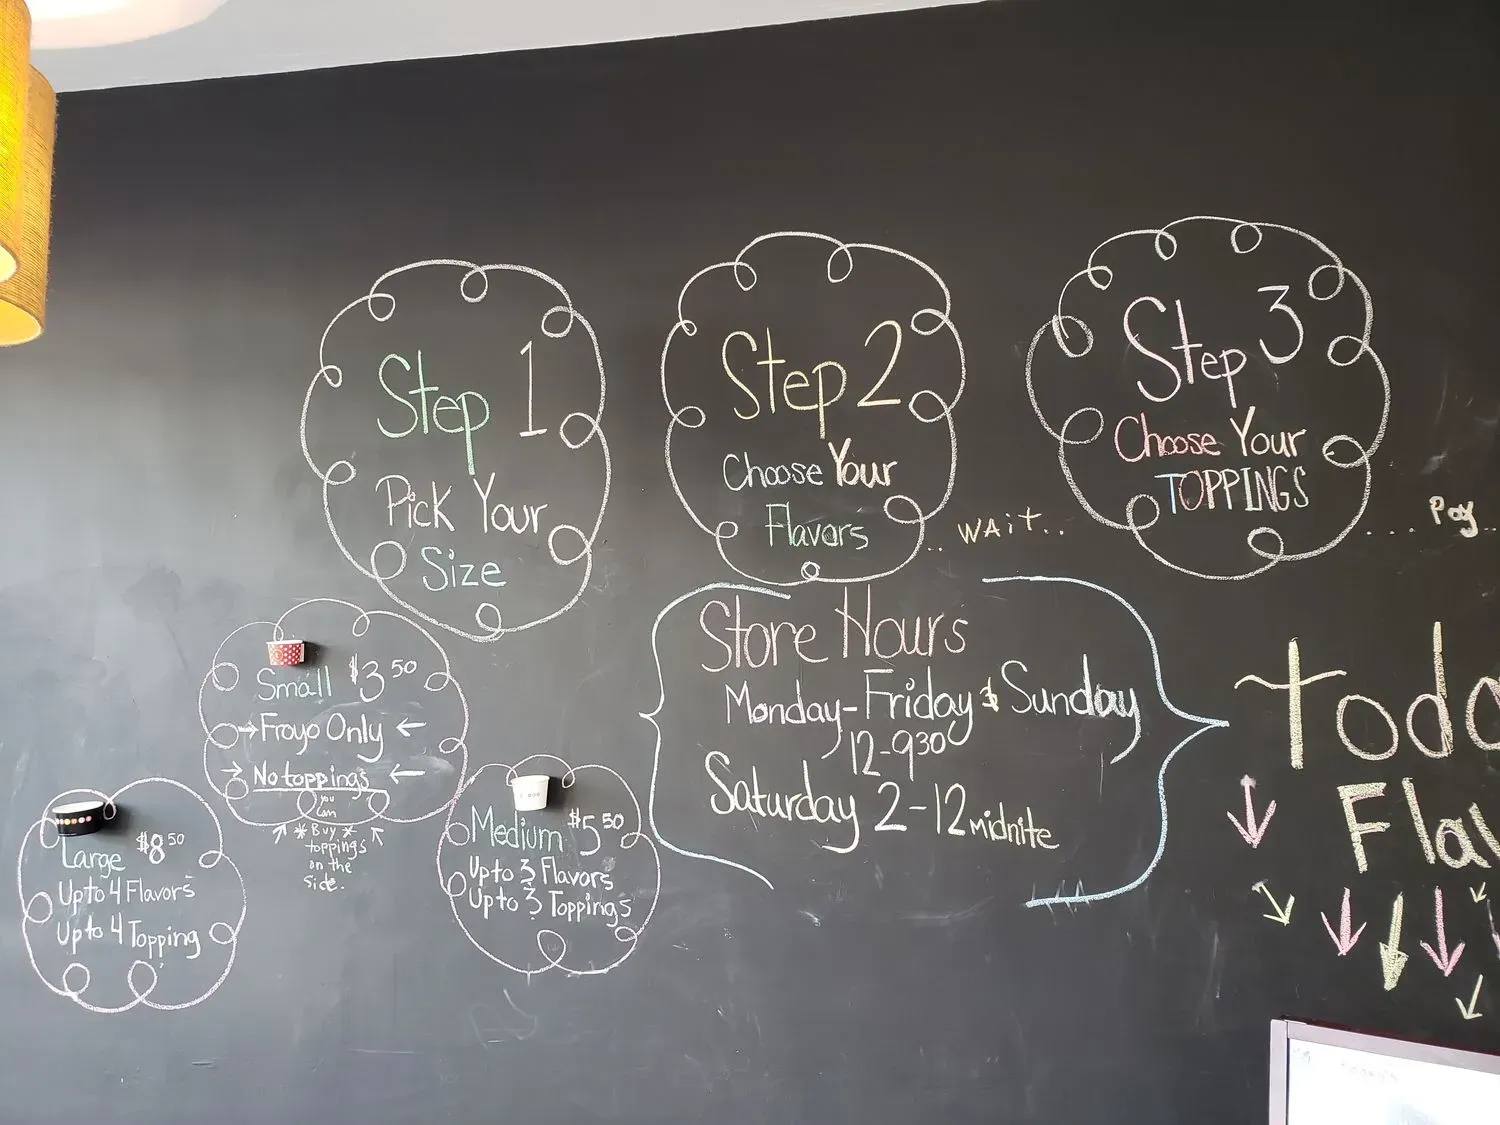 Step 1
Pick Your
Size
Step 2
Choose Your
Flavors
.. WAiT..
Step 3
Choose Your
TOPPINGS
.... Pay..
Small $3 50
→Froyo Only ←
→ No toppings ←
you
can
* Buy *
toppings
on the
side.
Large $8 50
Upto 4 Flavors
Upto 4 Topping
Medium $5 50
Upto 3 Flavors
Upto 3 Toppings
Store Hours
Monday-Friday & Sunday
12-930
Saturday 2-12 midnite
Toda
Flav